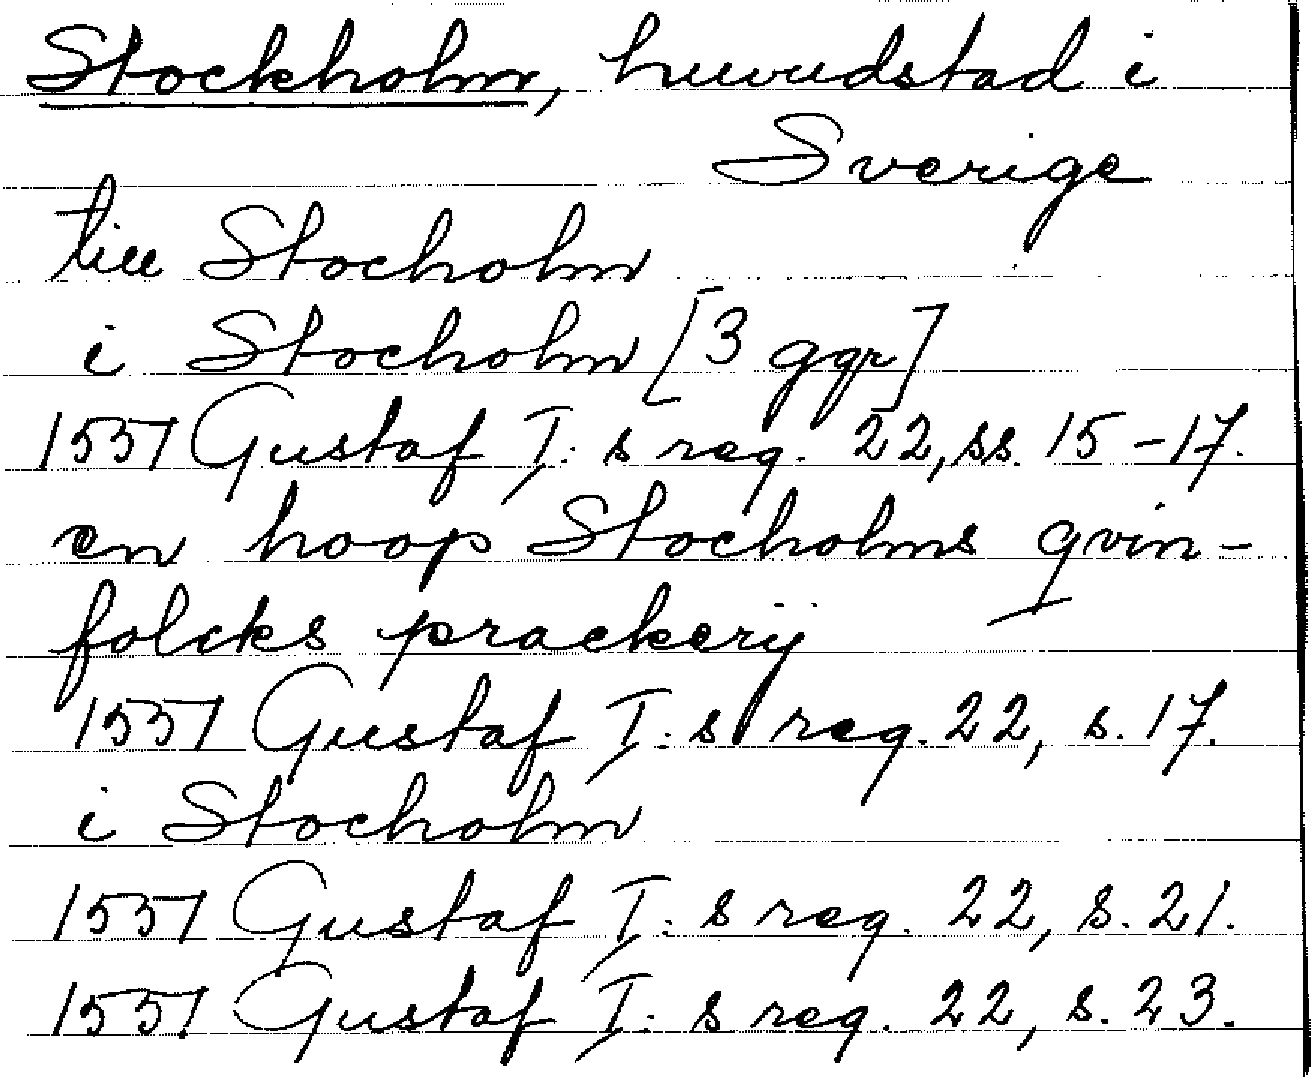 Stockholm, huvudstad i
Sverige
till Stocholm
i Stocholm [3 ggr]
1551 Gustaf I:s reg. 22, ss. 15-17.
en hoop Stocholms qvin-
folcks prackerij
1551 Gustaf I:s reg. 22, s. 17.
i Stocholm
1551 Gustaf I:s reg. 22, s. 21.
1551 Gustaf I:s reg. 22, s. 23.